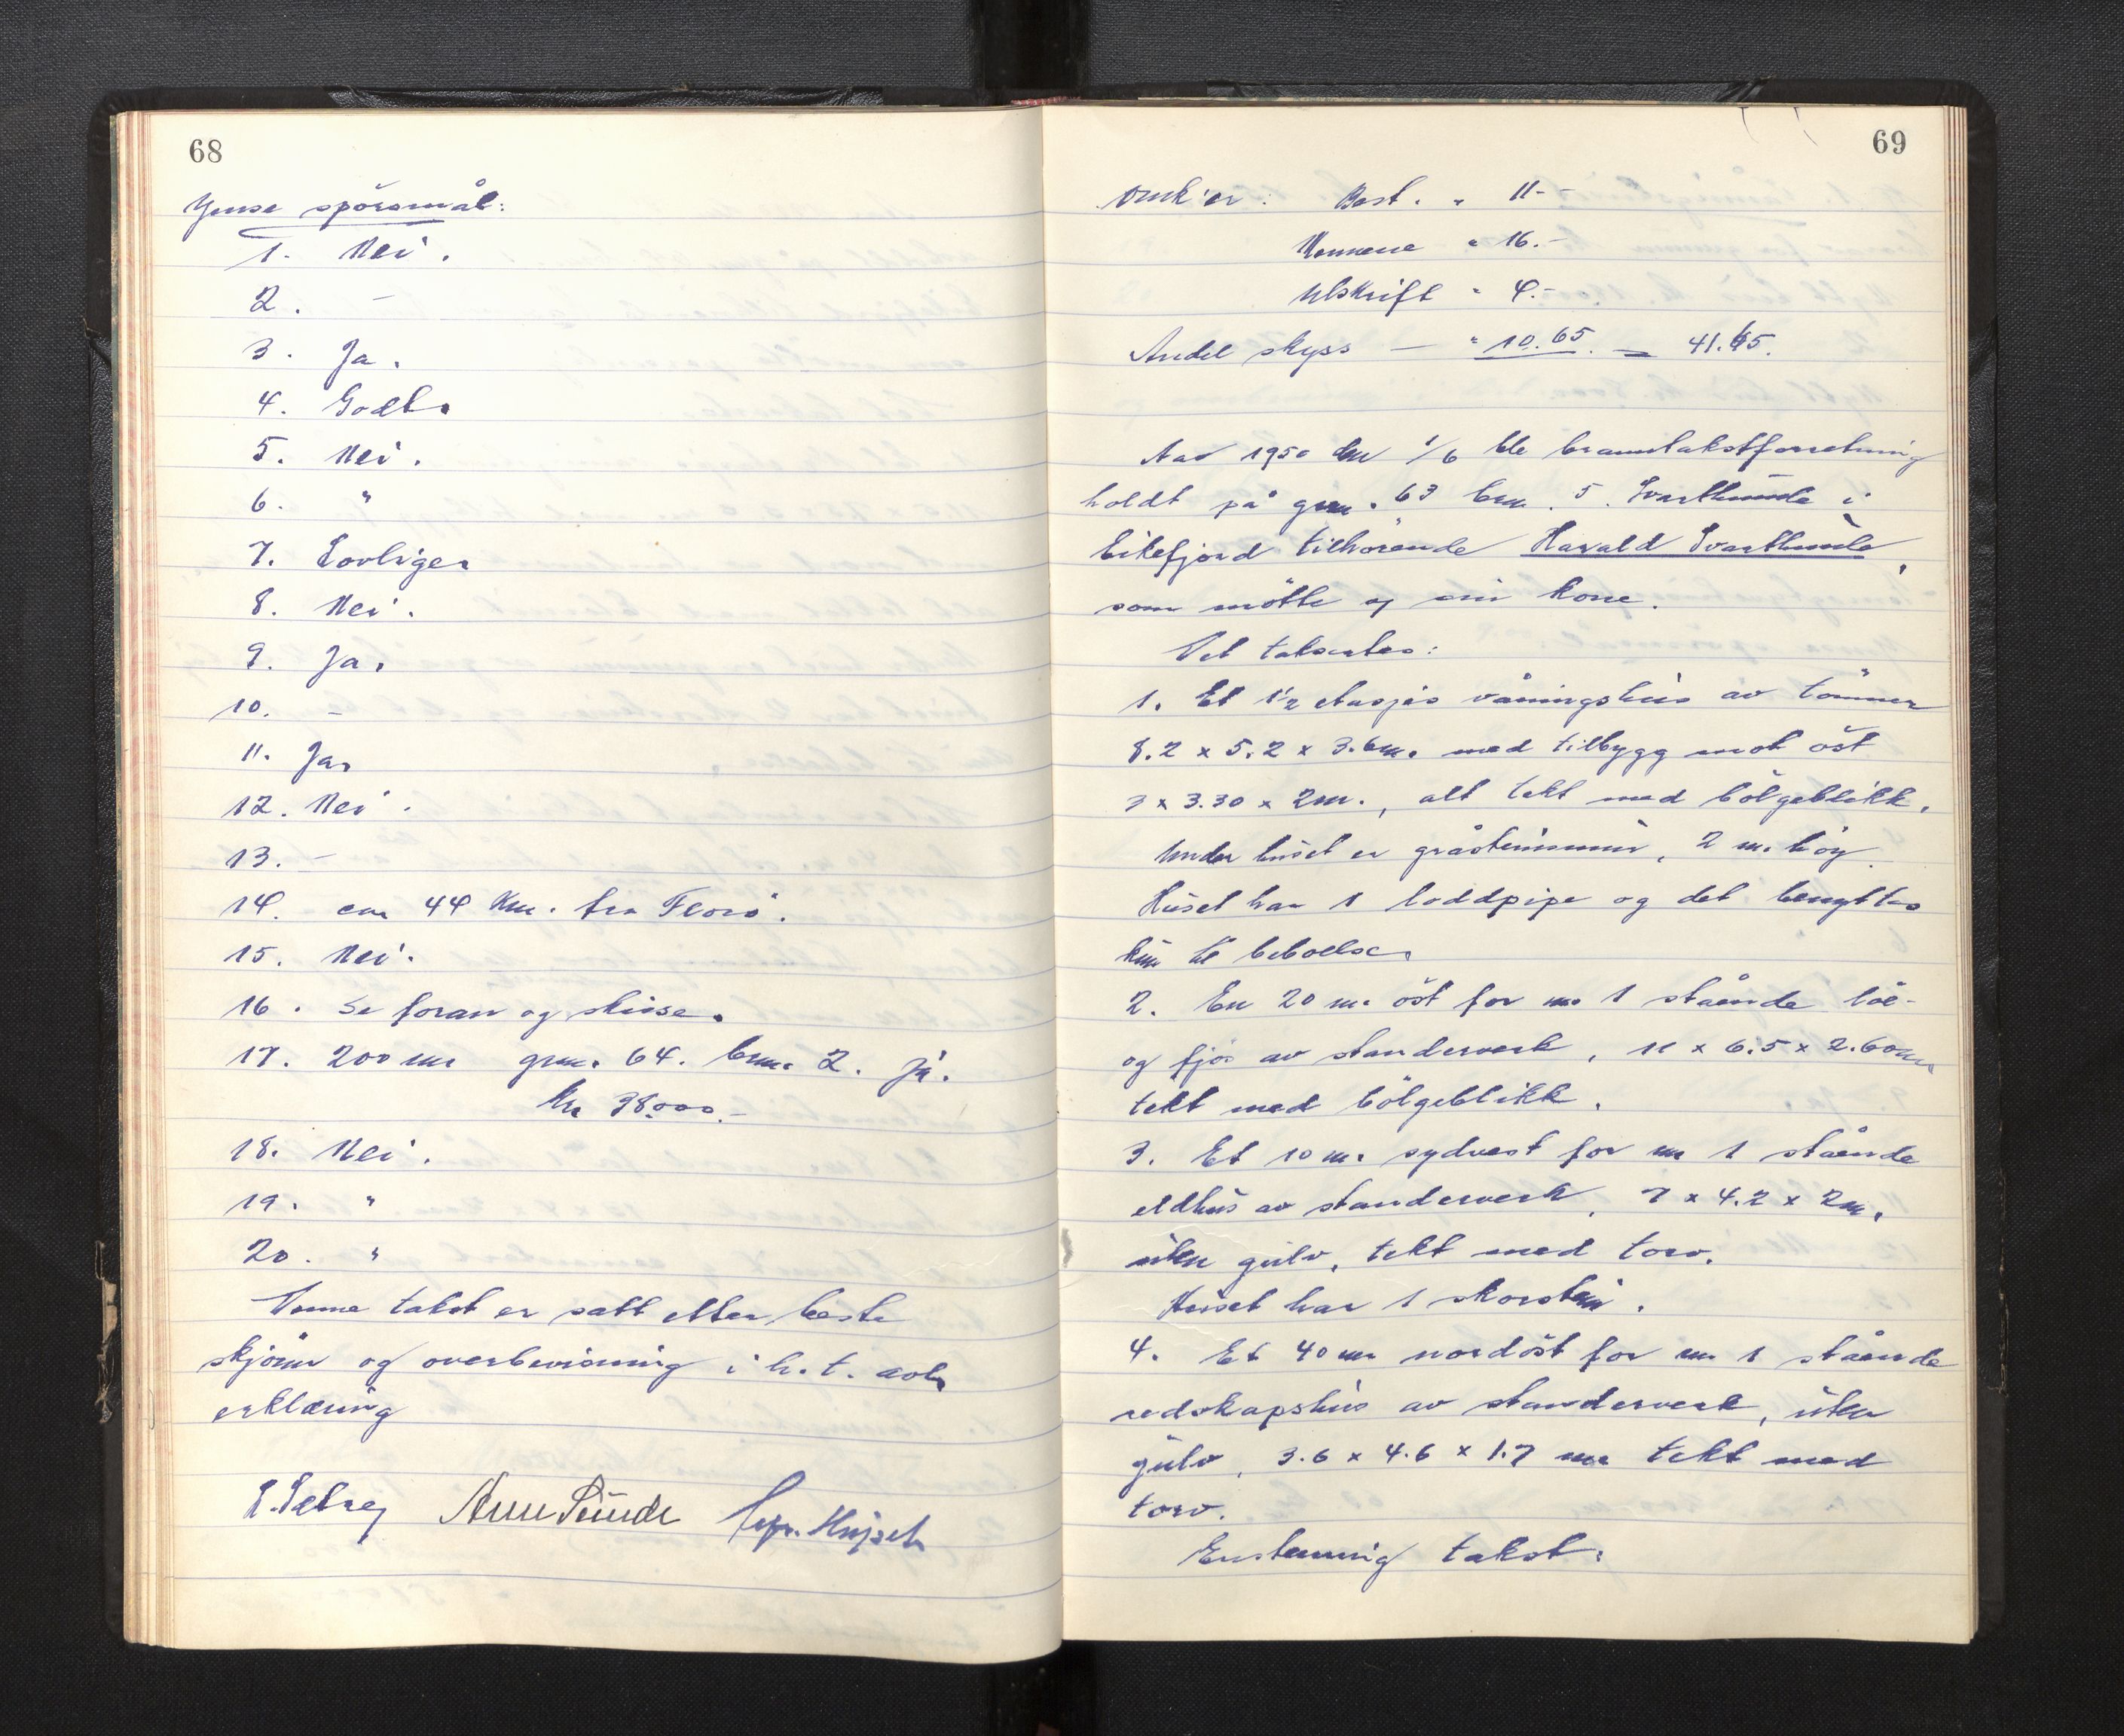 68
Ymse spörsmål:
1. Nei.
2. –
3. Ja.
4. Godt.
5. Nei.
6. "
7. Lovliger
8. Nei.
9. Ja.
10. –
11. Ja.
12. Nei.
13. –
14. ca. 44 km. fra Florö.
15. Nei.
16. Se foran og skisse.
17. 200 m. gnr. 64. bnr. 2. Ja.
Kr. 38.000.–
18. Nei.
19. "
20. "
Denne takst er satt etter beste
skjönn og overbevisning i h.t. avla
erklæring
Arne Sunde
69
Omk'er: Best. " 11.-
Mennene " 16.-
Utskrift " 4.-
Andel skyss — " 10.65 = 41.65.
Aar 1950 den 1/6 ble branntakstforretning
holdt på gnr. 63 bnr. 5. Svarthumle i
Eikefjord tilhörende Harald Svarthumle,
som mötte og sin kone.
Det takseres:
1. Et 1½ etasjes våningshus av tömmer
8.2 x 5.2 x 3.6m. med tilbygg mot öst
3 x 3.30 x 2m., alt tekt med bölgeblikk.
Under huset er gråsteinsmur, 2 m. höy.
Huset har 1 loddpipe og det benyttes
kun til beboelse.
2. En 20 m. öst for nr. 1 stående löe-
og fjös av standerverk, 11 x 6.5 x 2.60m.
tekt med bölgeblikk.
3. Et 10 m. sydvest for nr 1 stående
eldhus av standerverk, 7 x 4.2 x 2m.
uten gulv, tekt med torv.
Huset har 1 skorstein.
4. Et 40 m. nordöst for nr. 1 stående
redskapshus av standerverk, uten
gulv, 3.6 x 4.6 x 1.7 m. tekt med
torv.
Enstemmig takst: